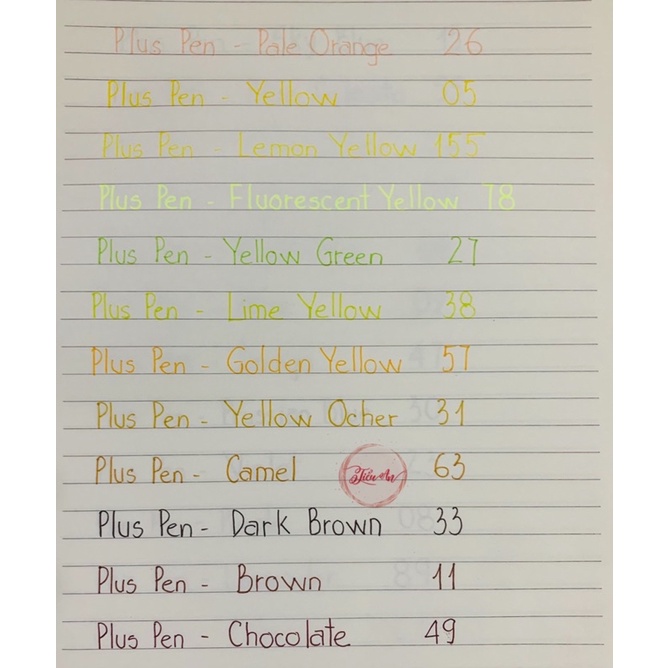 Plus Pen - Pale Orange 26
Plus Pen - Yellow 05
Plus Pen - Lemon Yellow 155
Plus Pen - Fluorescent Yellow 78
Plus Pen - Yellow Green 27
Plus Pen - Lime Yellow 38
Plus Pen - Golden Yellow 57
Plus Pen - Yellow Ocher 31
Plus Pen - Camel 63
Plus Pen - Dark Brown 33
Plus Pen - Brown 11
Plus Pen - Chocolate 49